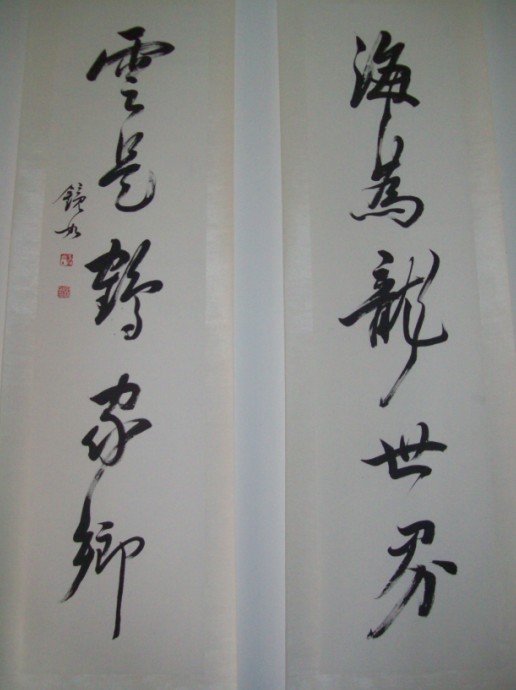 海為龍世界
雲是鶴家鄉
鏡如